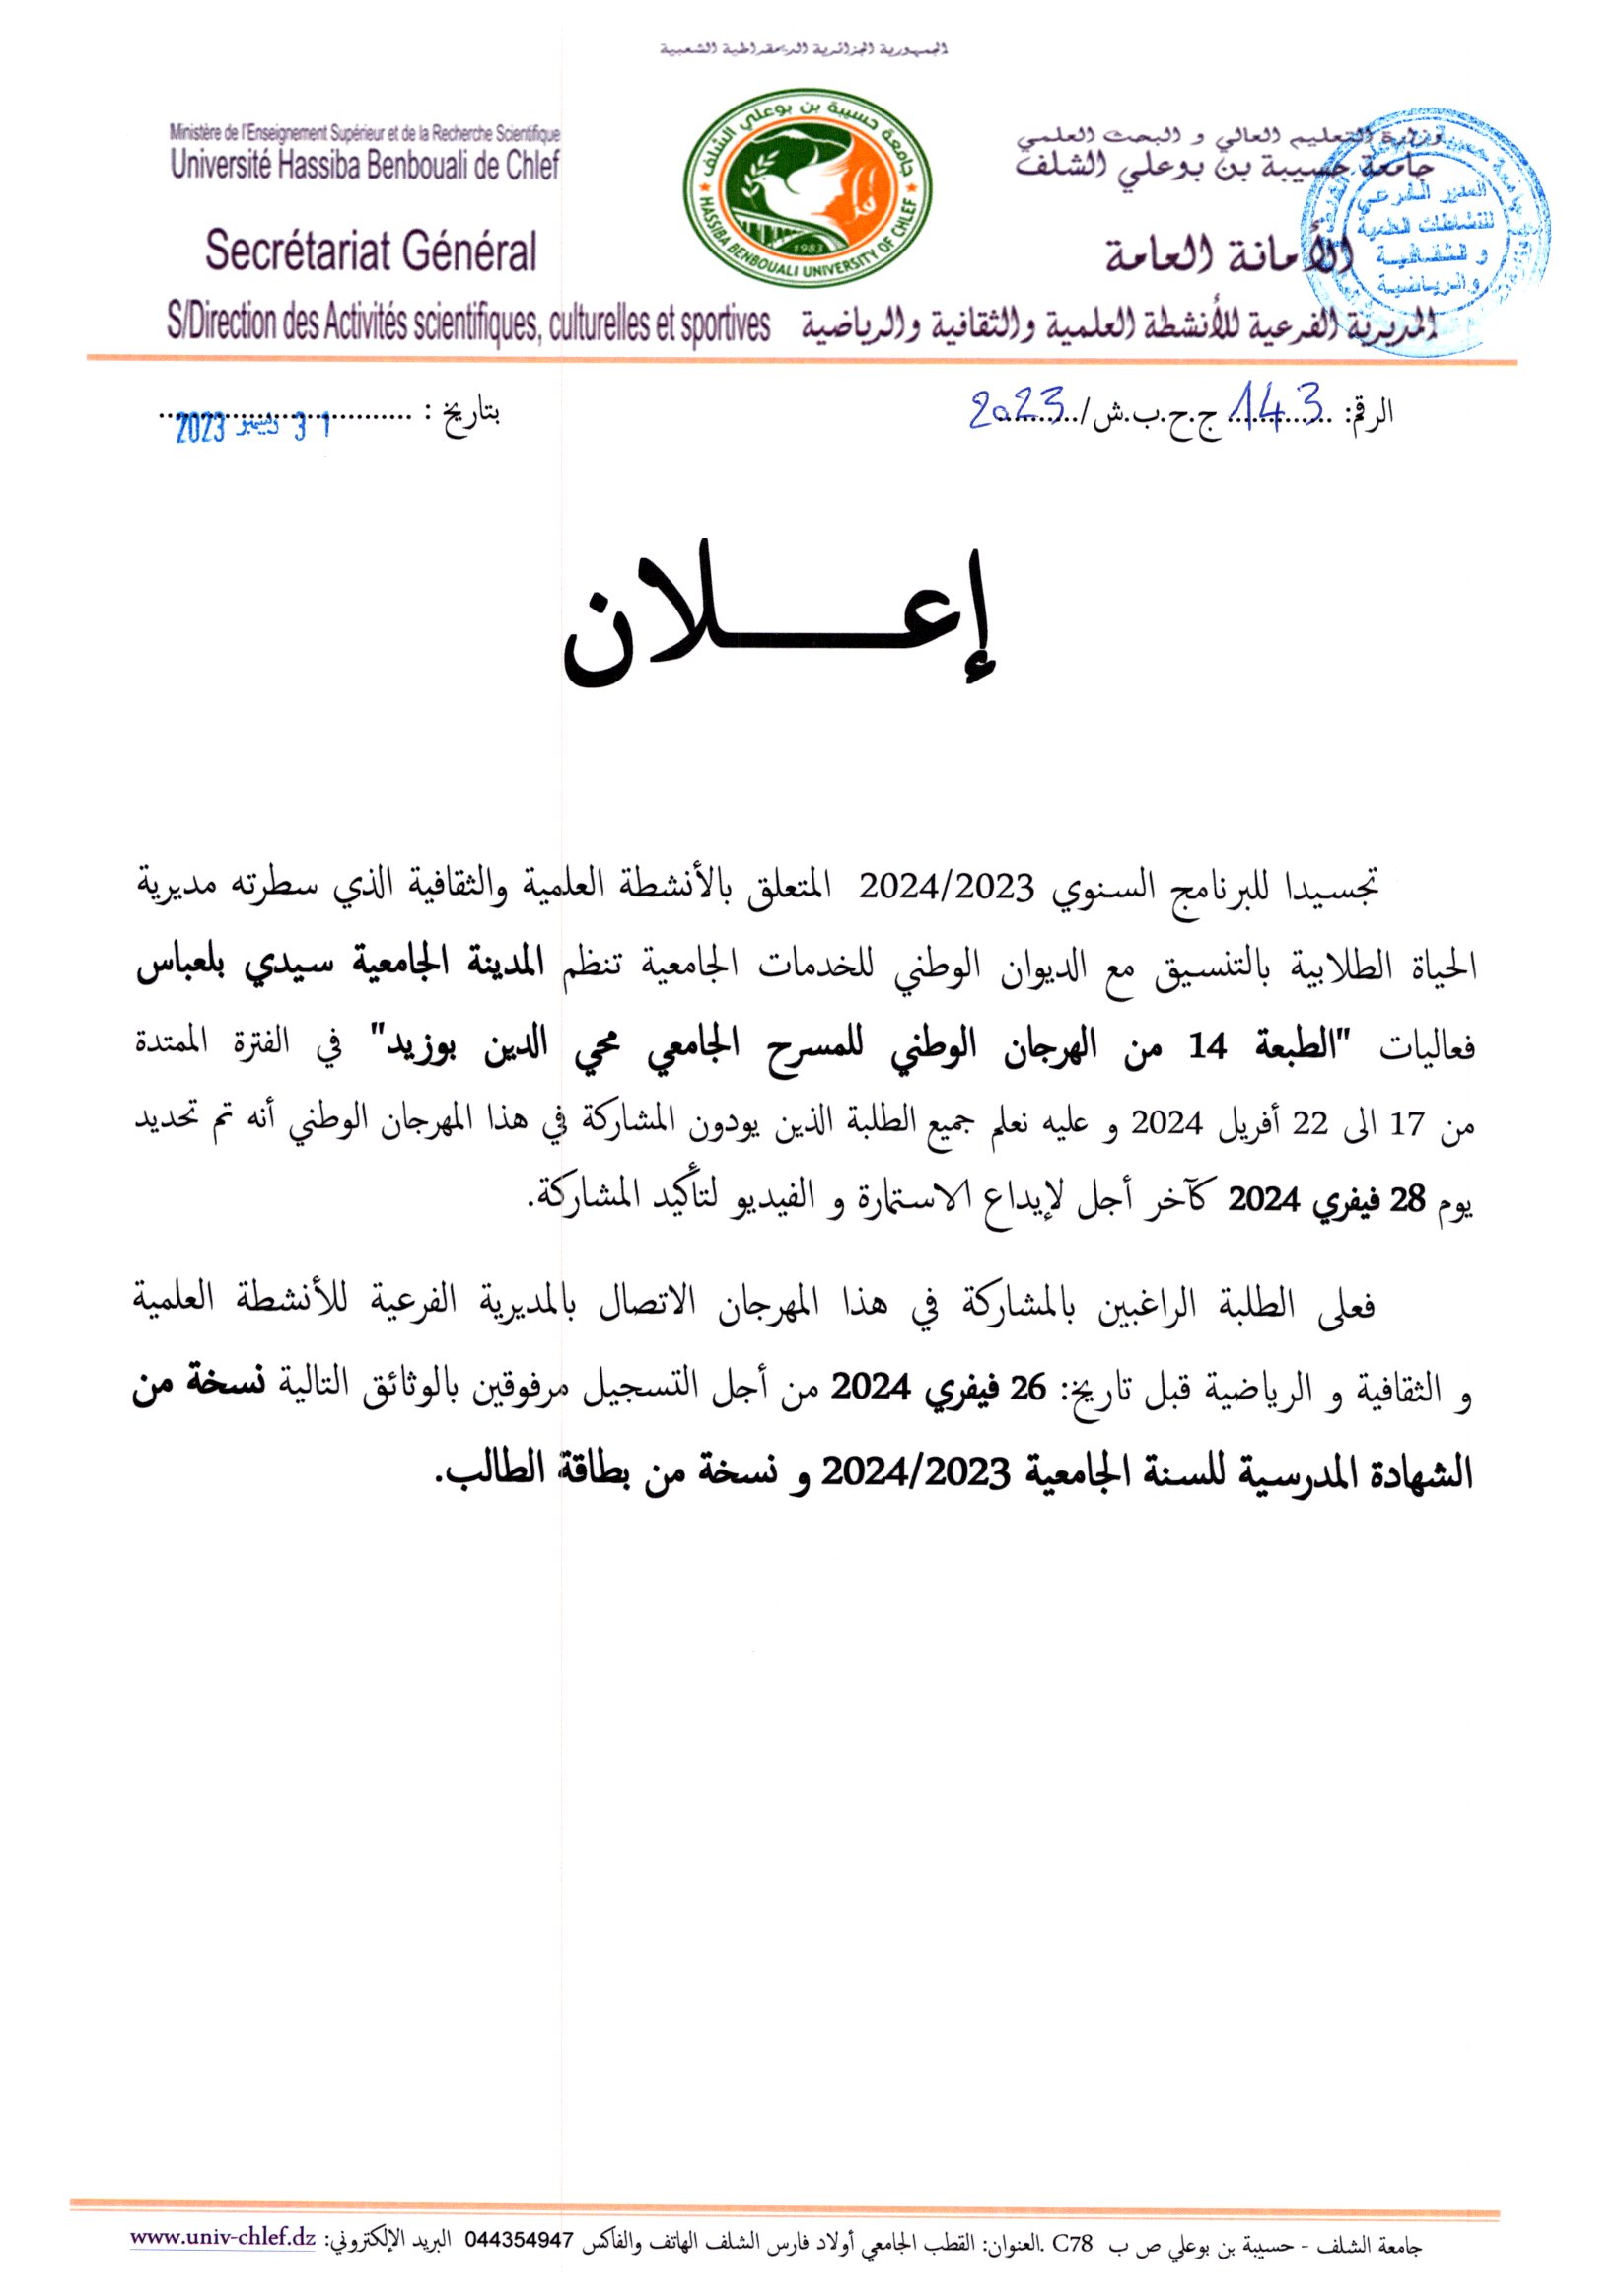 الجمهورية الجزائرية الديمقراطية الشعبية
وزارة التعليم العالي و البحث العلمي
Ministère de l'Enseignement Supérieur et de la Recherche Scientifique
جامعة حسيبة بن بوعلي الشلف
Université Hassiba Benbouali de Chlef
جامعة حسيبة بن بوعلي الشلف
HASSIBA BENBOUALI UNIVERSITY OF CHLEF
1983
المدير الفرعي
للنشاطات العلمية
و الثقافية
والرياضية
الأمانة العامة
Secrétariat Général
المديرية الفرعية للأنشطة العلمية والثقافية والرياضية
S/Direction des Activités scientifiques, culturelles et sportives
الرقم: 143 ج.ح.ب.ش/2023
بتاريخ : 31 ديسمبر 2023
إعـــــلان
تجسيدا للبرنامج السنوي 2024/2023 المتعلق بالأنشطة العلمية والثقافية الذي سطرته مديرية
الحياة الطلابية بالتنسيق مع الديوان الوطني للخدمات الجامعية تنظم المدينة الجامعية سيدي بلعباس
فعاليات "الطبعة 14 من الهرجان الوطني للمسرح الجامعي محي الدين بوزيد" في الفترة الممتدة
من 17 الى 22 أفريل 2024 و عليه نعلم جميع الطلبة الذين يودون المشاركة في هذا المهرجان الوطني أنه تم تحديد
يوم 28 فيفري 2024 كآخر أجل لإيداع الاستمارة و الفيديو لتأكيد المشاركة.
فعلى الطلبة الراغبين بالمشاركة في هذا المهرجان الاتصال بالمديرية الفرعية للأنشطة العلمية
و الثقافية و الرياضية قبل تاريخ: 26 فيفري 2024 من أجل التسجيل مرفوقين بالوثائق التالية نسخة من
الشهادة المدرسية للسنة الجامعية 2024/2023 و نسخة من بطاقة الطالب.
جامعة الشلف - حسيبة بن بوعلي ص ب C78 .العنوان: القطب الجامعي أولاد فارس الشلف الهاتف والفاكس 044354947 البريد الإلكتروني: www.univ-chlef.dz